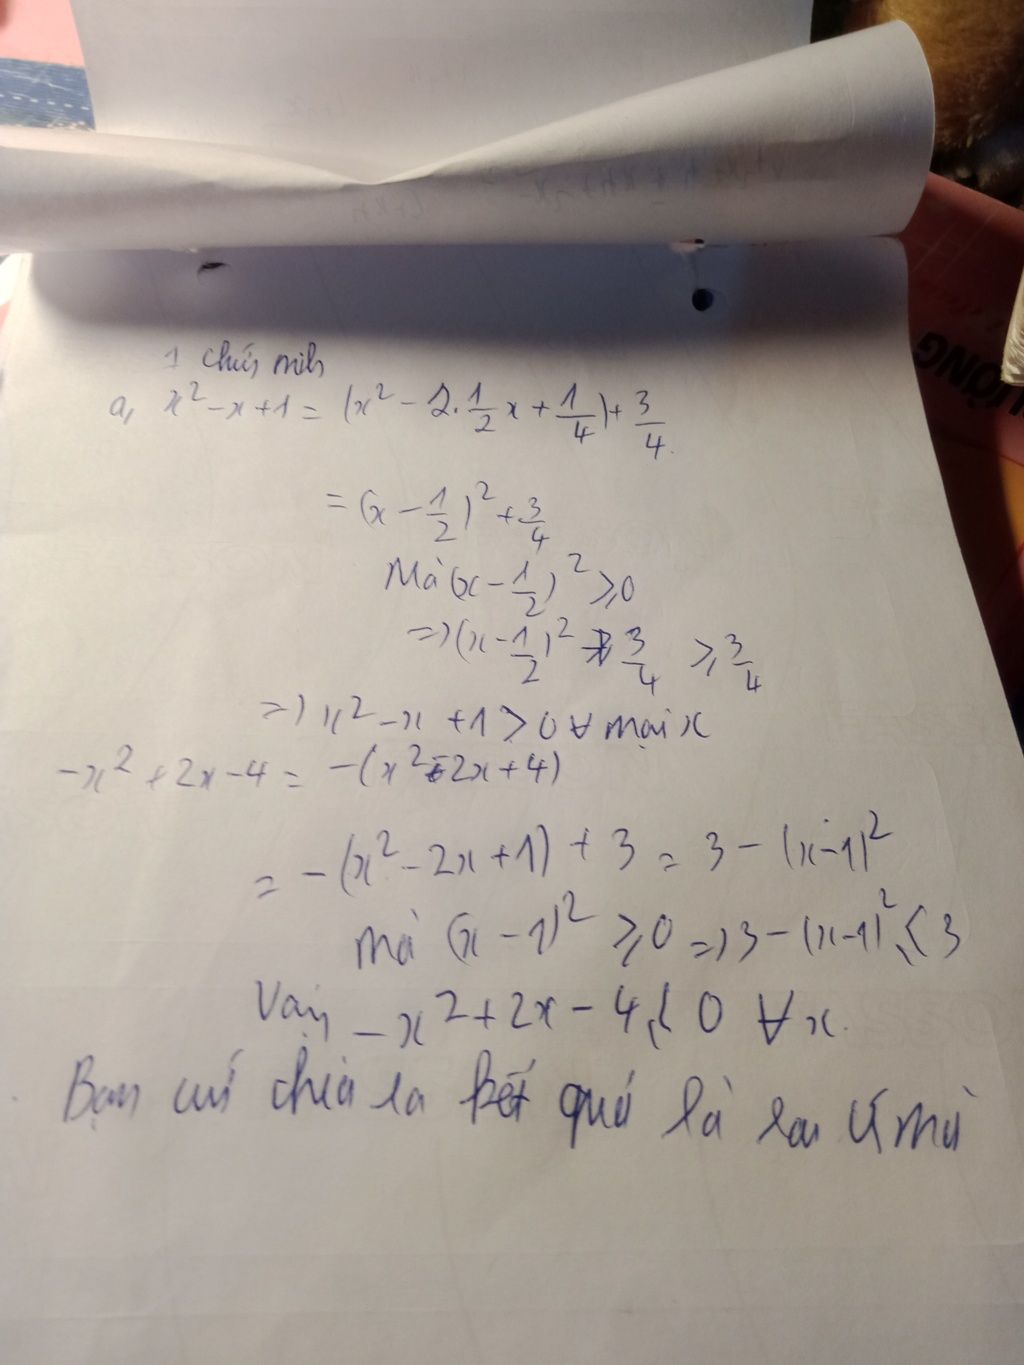 1 chứng minh
a, x² - x + 1 = (x² - 2.1/2x + 1/4) + 3/4.
= (x - 1/2)² + 3/4
Mà (x - 1/2)² ≥ 0
=> (x - 1/2)² + 3/4 ≥ 3/4
=> x² - x + 1 > 0 ∀ mọi x
-x² + 2x - 4 = -(x² - 2x + 4)
= -(x² - 2x + 1) + 3 = 3 - (x - 1)²
mà (x - 1)² ≥ 0 => 3 - (x - 1)² ≤ 3
Vậy -x² + 2x - 4 ≤ 0 ∀x.
Bạn cứ chia ra kết quả là ra ý mà
ƯỜNG